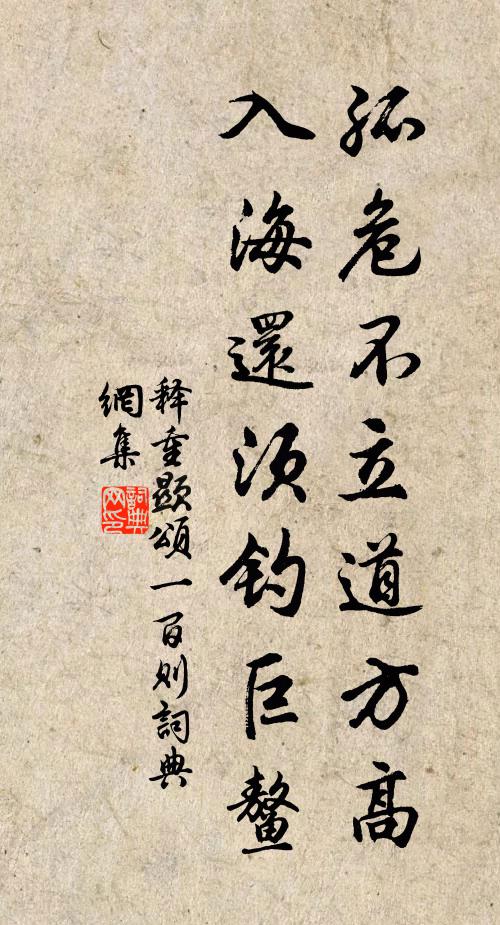 孤危不立道方高
入海還須釣巨鰲
释重顯頌一百则詞典
網集
詞典
网印